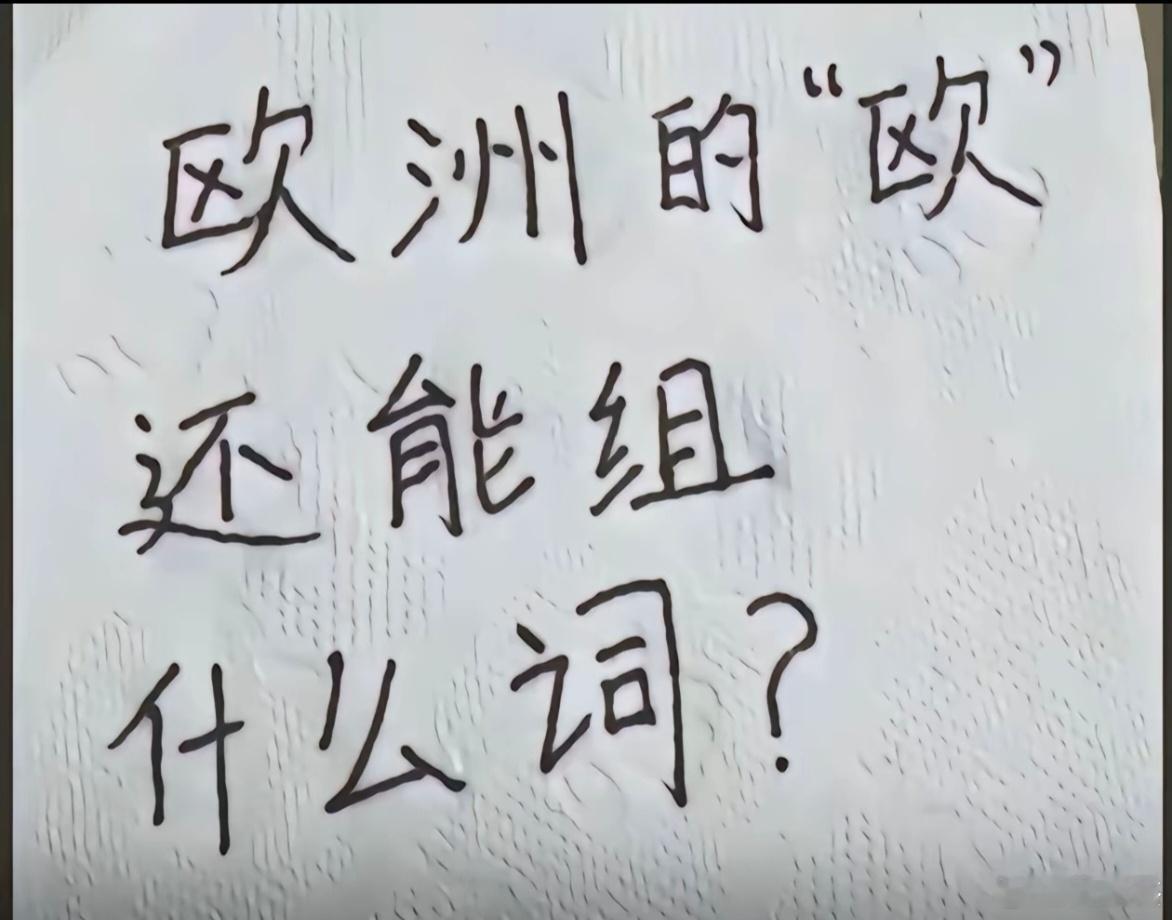 欧洲的“欧”
还能组
什么词?